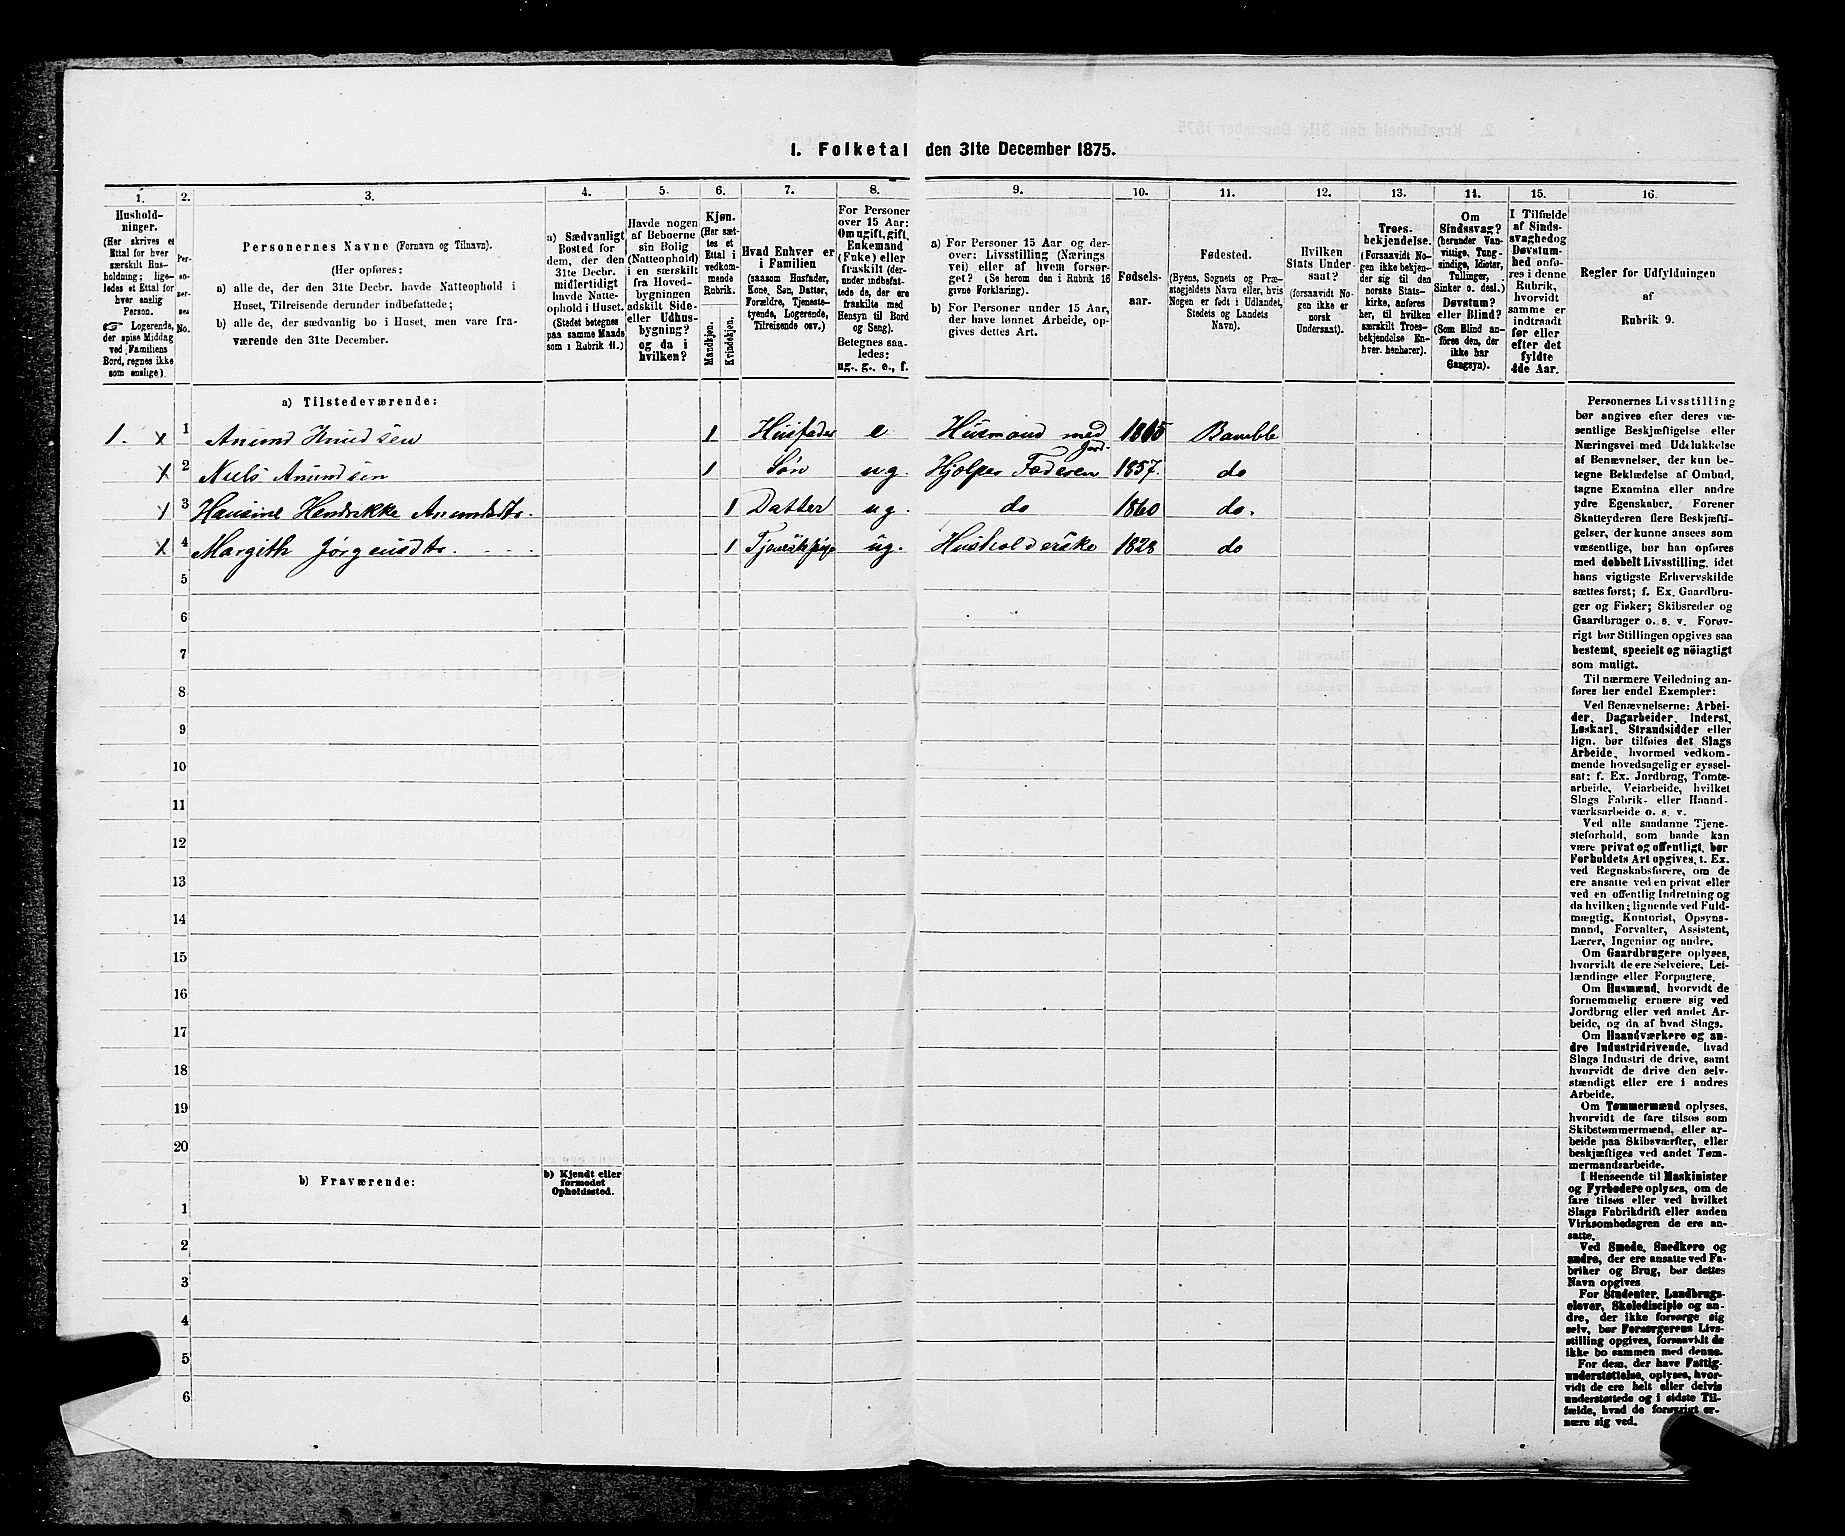 1. Folketal den 31te December 1875.
1. 2. 3. 4. 5. 6. 7. 8. 9. 10. 11. 12. 13. 14. 15. 16.
Hushold-
ninger.
(Her skrives et
Ettal for hver
særskilt Hus-
holdning; lige-
ledes et Ettal for
hver enslig
Person.
☞ Logerende,
der spise Middag
ved Familiens
Bord, regnes ikke
som enslige).
Per-
so-
ner-
nes
No.
Personernes Navne (Fornavn og Tilnavn).
(Her opføres:
a) alle de, der den 31te Decbr. havde Natteophold i
Huset, Tilreisende derunder indbefattede;
b) alle de, der sædvanlig bo i Huset, men vare fra-
værende den 31te December.
a) Sædvanligt
Bosted for
dem, der den
31te Decbr.
midlertidigt
havde Natte-
ophold i Huset.
(Stedet betegnes
paa samme Maade
som i Rubrik 11.)
Havde nogen
af Beboerne
sin Bolig
(Natteophold)
i en særskilt
fra Hoved-
bygningen
adskilt Side-
eller Udhus-
bygning?
og da i
hvilken?
Kjøn.
(Her sæt-
tes et
Ettal i
vedkom-
mende
Rubrik.
Mandkjøn.
Kvindekjøn.
Hvad Enhver er
i Familien
(saasom Husfader,
Kone, Søn, Datter,
Forældre, Tjeneste-
tyende, Logerende,
Tilreisende osv.)
For Personer
over 15 Aar:
Om ugift, gift,
Enkemand
(Enke) eller
fraskilt (der-
under indbefat-
tede de, der ere
fraskilte med
Hensyn til Bord
og Seng).
Betegnes saa-
ledes:
ug., g., e., f.
a) For Personer 15 Aar og der-
over: Livsstilling (Nærings
vei) eller af hvem forsør-
get? (Se herom den i Rubrik 16
givne Forklaring).
b) For Personer under 15 Aar,
der have lønnet Arbeide, op-
gives dettes Art.
Fødsels-
aar.
Fødested.
(Byens, Sognets og Præ-
stegjeldets Navn eller, hvis
Nogen er født i Udlandet,
Stedets og Landets
Navn).
Hvilken
Stats Under
saat?
(forsaavidt No
gen ikke er
norsk
Undersaat).
Troes-
bekjendelse.
(Forsaavidt No-
gen ikke bekjen-
der sig til den
norske Stats-
kirke, anføres
her, til hvilken
særskilt Troes-
bekjendelse En-
hver henhører).
Om
Sindssvag?
(herunder Van-
vittige, Tung-
sindige, Idioter,
Tullinger,
Sinker o. desl.)
Døvstum?
eller Blind?
(Som Blind an-
føres den, der
ikke har
Gangsyn).
I Tilfælde
af Sinds-
svaghed og
Døvstum-
hed anfø-
res i denne
Rubrik,
hvorvidt
samme er
indtraadt
før eller
efter det
fyldte
4de Aar.
Regler for Udfyldningen
af
Rubrik 9.
a) Tilstedeværende:
1. x 1 Anund Knudsen 1 Husfader e Husmand med Jord 1815 Bamble
x 2 Niels Anundsen 1 Søn ug. Hjelper Faderen 1857. do
x 3 Hansine Hendrikke Anundsdtr. 1 Datter ug. do 1860 do.
x 4 Margith Jørgensdtr. 1 Tjenestepige ug. Husholderske 1828 do
5
6
7
8
9
10
11
12
13
14
15
16
17
18
19
20
b) Fraværende:
b) Kjendt eller
formodet
Opholdssted.
1
2
3
4
5
6
Personernes Livsstilling
bør angives efter deres væ-
sentlige Beskjæftigelse eller
Næringsvei med Udelukkelse
af Benævnelser, der kun be-
tegne Beklædelse af Ombud,
tagne Examina eller andre
ydre Egenskaber. Forener
Skatteyderen flere Beskjæfti-
gelser, der kunne ansees som
væsentlige, bør han opføres
med dobbelt Livsstilling, idet
hans vigtigste Erhvervskilde
sættes først; f. Ex. Gaardbru-
ger og Fisker; Skibsreder og
Gaardbruger o. s. v. Forøv-
rigt bør Stillingen opgives saa
bestemt, specielt og nøiagtigt
som muligt.
Til nærmere Veiledning an-
føres her endel Exempler:
Ved Benævnelserne: Arbei-
der, Dagarbeider, Inderst,
Løskarl, Strandsidder eller
lign. bør tilføies det Slags
Arbeide, hvormed vedkom-
mende hovedsagelig er syssel-
sat: f. Ex. Jordbrug, Tomte-
arbeide, Veiarbeide, hvilket
Slags Fabrik- eller Haand-
værksarbeide o. s. v.
Ved alle saadanne Tjene-
steforhold, som baade kan
være privat og offentligt, bør
Forholdets Art opgives, t. Ex.
ved Regnskabsførere, om de
ere ansatte ved en privat eller
ved en offentlig Indretning og
da hvilken; lignende ved Fuld-
mægtig, Kontorist, Opsyns-
mand, Forvalter, Assistent,
Lærer, Ingeniør og andre.
Om Gaardbrugere oplyses,
hvorvidt de ere Selveiere, Lei-
lændinge eller Forpagtere.
Om Husmænd, hvorvidt de
fornemmelig ernære sig ved
Jordbrug eller ved andet Ar-
beide, og da af hvad Slags.
Om Haandværkere og an-
dre Industridrivende, hvad
Slags Industri de drive, samt
hvorvidt de drive den selv-
stændigt eller ere i andres
Arbeide.
Om Tømmermænd oplyses,
hvorvidt de fare tilsøs som
Skibstømmermænd, eller ar-
beide paa Skibsværfter, eller
beskjæftiges ved andet Tøm-
mermandsarbeide.
I Henseende til Maskinister
og Fyrbødere oplyses, om de
fare tilsøs eller ved hvilket
Slags Fabrikdrift eller anden
Virksomhedsgren de ere an-
satte.
Ved Smede, Snedkere og
andre, der ere ansatte ved Fa-
briker og Brug, bør dettes
Navn opgives
For Studenter, Landbrugs-
elever, Skoledisciple og an-
dre, der ikke forsørge sig
selv, bør Forsørgerens Livs-
stilling opgives, forsaavidt de
ikke bo sammen med denne.
For dem, der have Fattig-
understøttelse, oplyses, hvor-
vidt de ere helt eller delvis
understøttede og i sidste Til-
fælde, hvad de forøvrigt er-
nære sig ved.